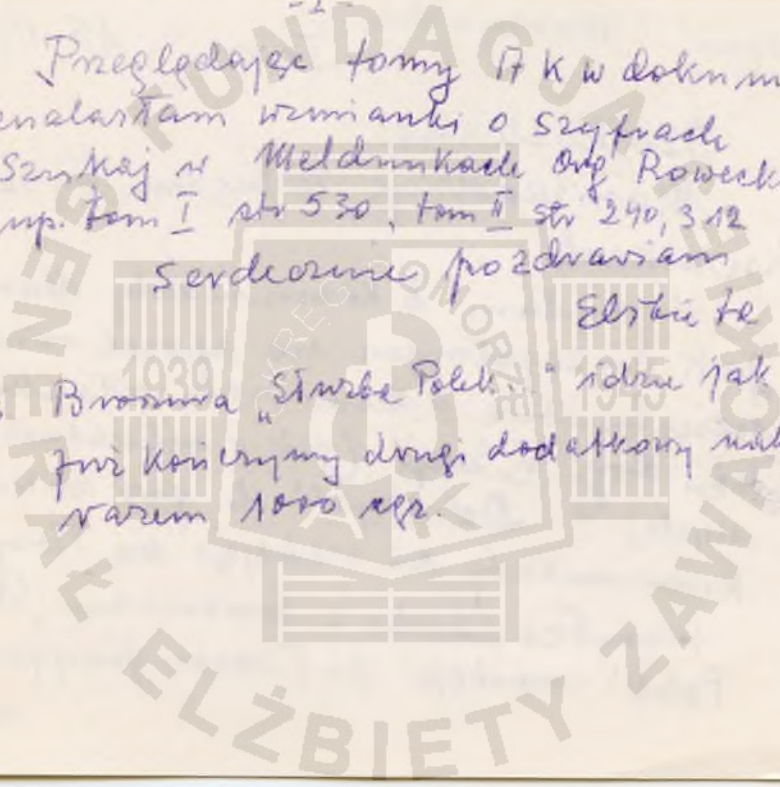 -2-
Przeglądając tomy AK w dokum
znalazłam wzmianki o szyfrach
Szukaj w Meldunkach Org Roweck
np. tom I str 530, tom II str 240, 312
Serdecznie pozdrawiam
Elżbieta
Broszura „Służba Polek..." idzie jak
już kończymy drugi dodatkowy nak
razem 1000 egz.
FUNDACJA GENERAŁ ELŻBIETY ZAWACKIEJ
OKRĘG POMORZE
1939 1945
AK